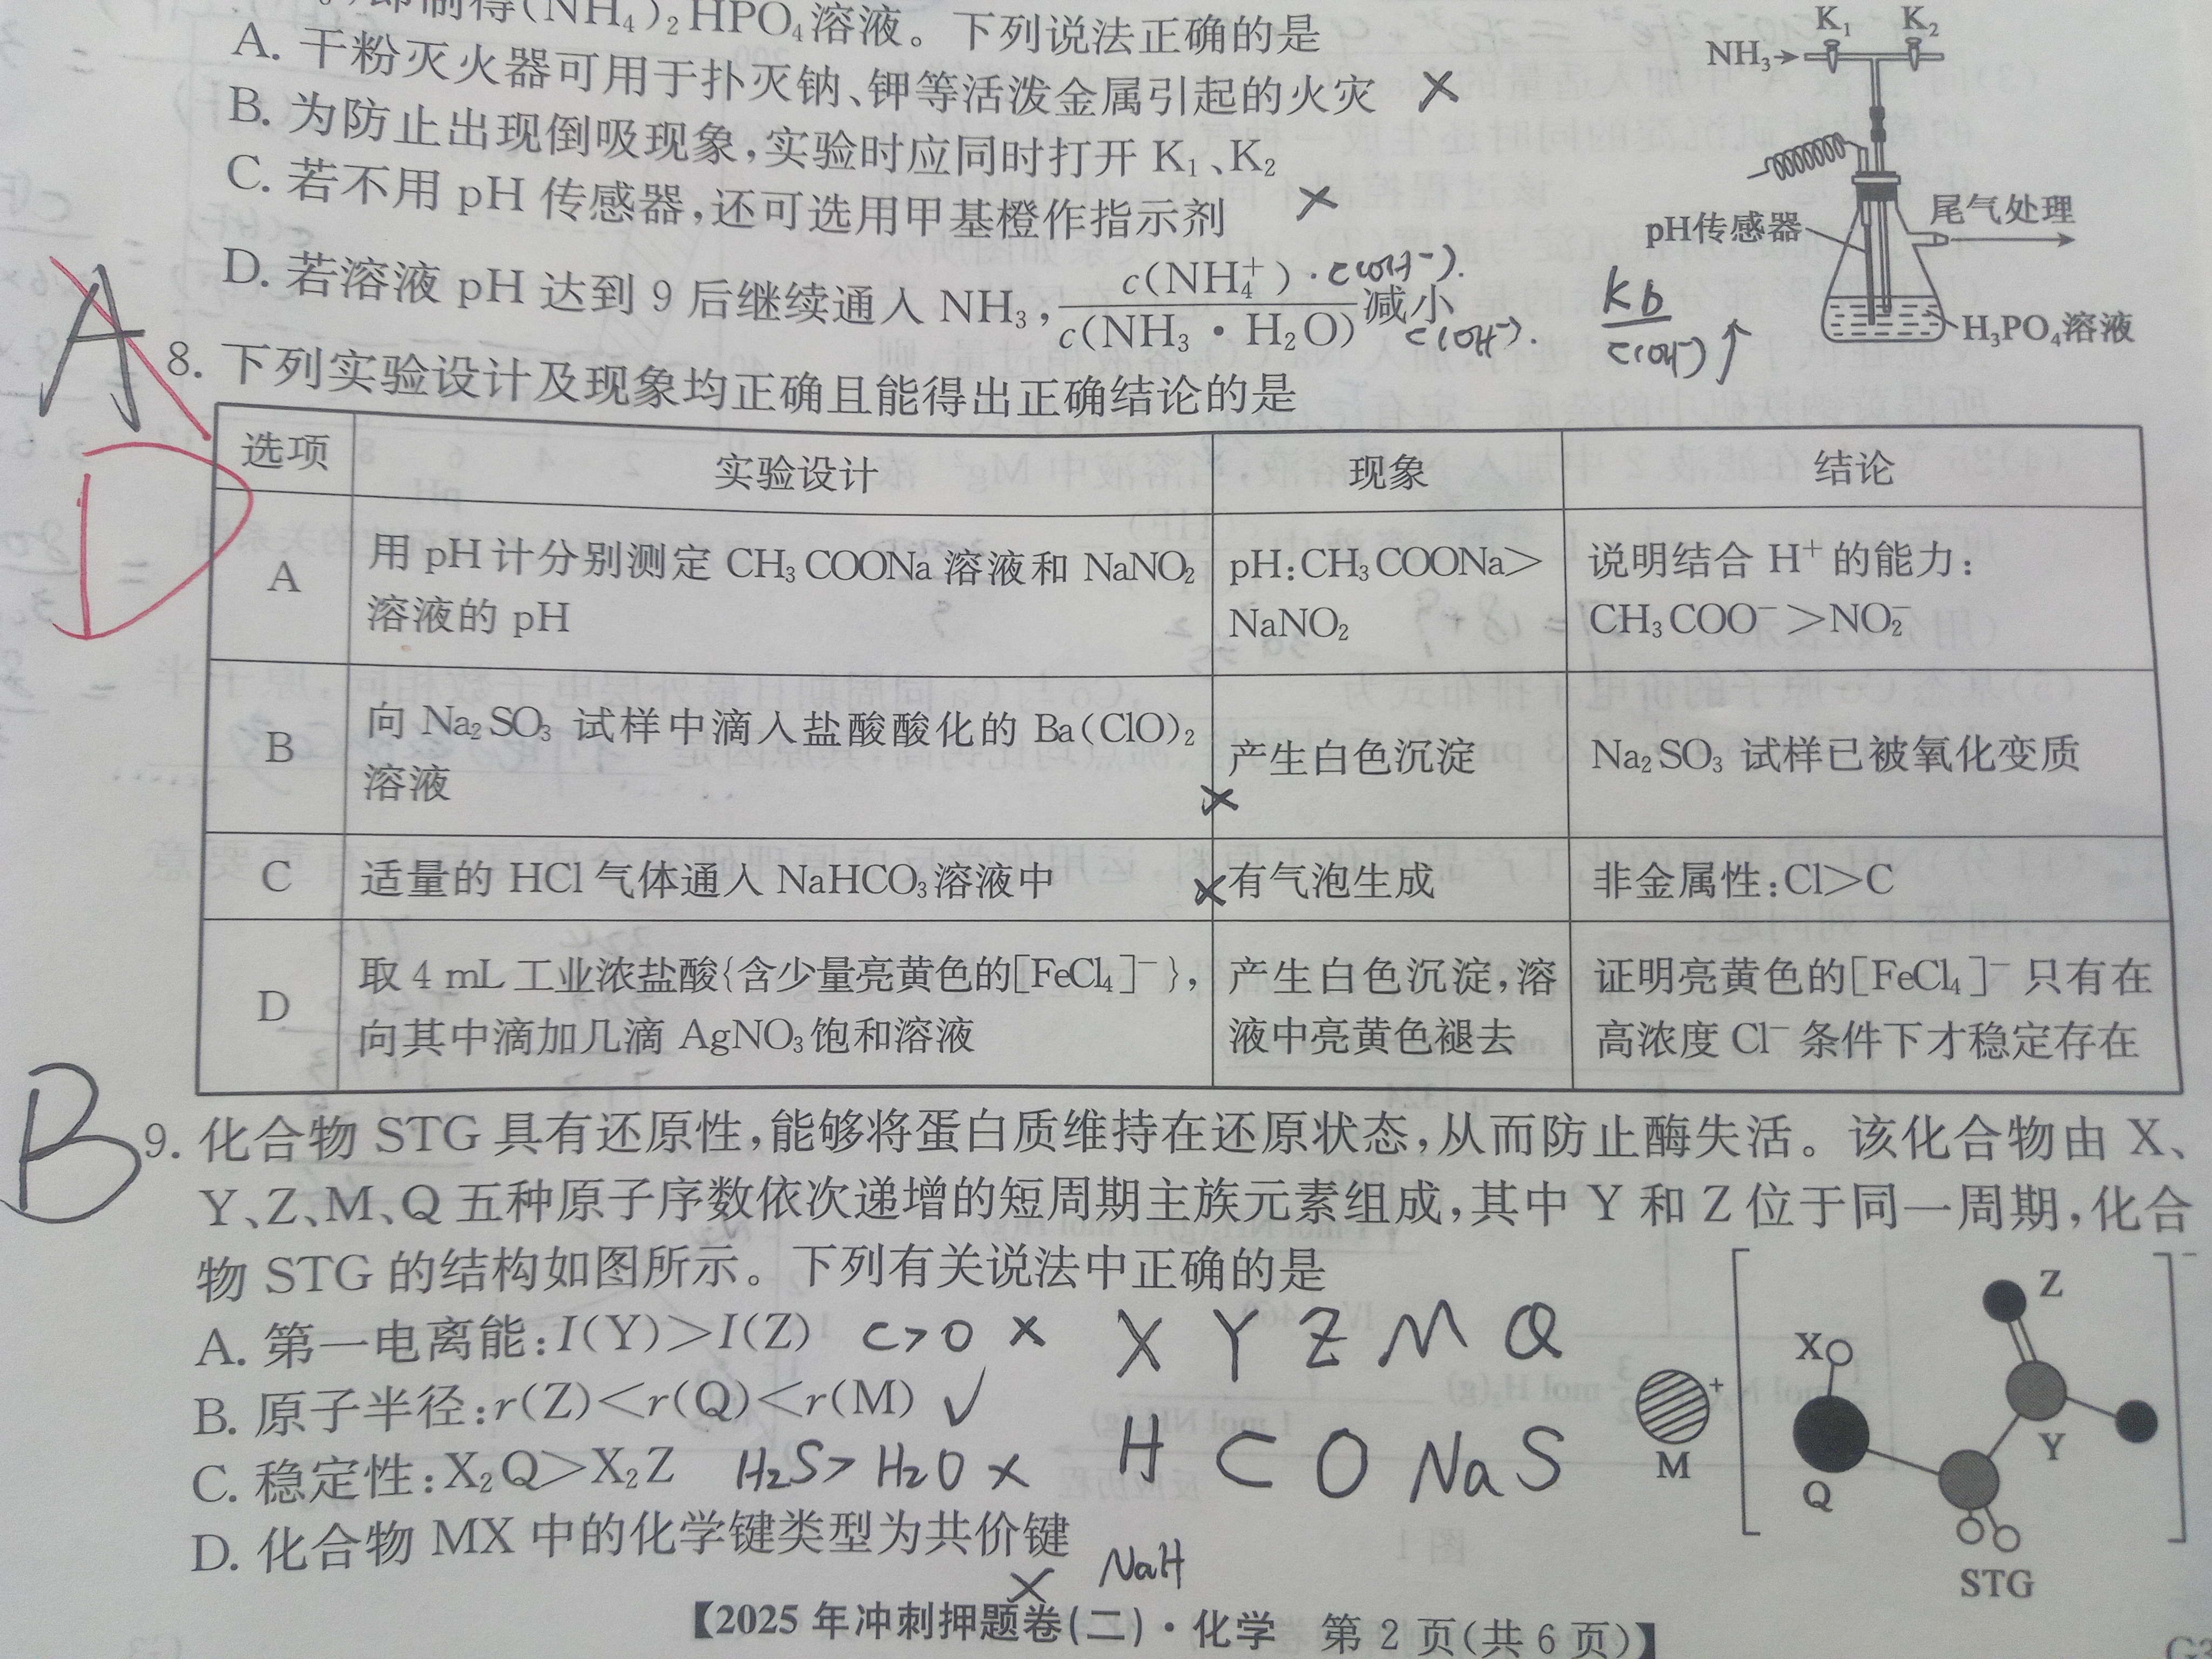 即制得(NH₄)₂HPO₄溶液。下列说法正确的是
A. 干粉灭火器可用于扑灭钠、钾等活泼金属引起的火灾 ×
B. 为防止出现倒吸现象,实验时应同时打开 K₁、K₂
C. 若不用 pH 传感器,还可选用甲基橙作指示剂 ×
D. 若溶液 pH 达到 9 后继续通入 NH₃, c(NH₄⁺)/c(NH₃·H₂O) 减小
·c(OH⁻).
c(OH⁻).
Kb/c(OH⁻) ↑
K₁ K₂
NH₃→
pH传感器
尾气处理
H₃PO₄溶液
A
D
8. 下列实验设计及现象均正确且能得出正确结论的是
选项 实验设计 现象 结论
A 用 pH 计分别测定 CH₃COONa 溶液和 NaNO₂ pH:CH₃COONa> 说明结合 H⁺ 的能力:
溶液的 pH NaNO₂ CH₃COO⁻>NO₂⁻
B 向 Na₂SO₃ 试样中滴入盐酸酸化的 Ba(ClO)₂ 产生白色沉淀 Na₂SO₃ 试样已被氧化变质
溶液 ×
C 适量的 HCl 气体通入 NaHCO₃溶液中 × 有气泡生成 非金属性:Cl>C
D 取 4 mL 工业浓盐酸{含少量亮黄色的[FeCl₄]⁻}, 产生白色沉淀,溶 证明亮黄色的[FeCl₄]⁻ 只有在
向其中滴加几滴 AgNO₃饱和溶液 液中亮黄色褪去 高浓度 Cl⁻ 条件下才稳定存在
B
9. 化合物 STG 具有还原性,能够将蛋白质维持在还原状态,从而防止酶失活。该化合物由 X、
Y、Z、M、Q 五种原子序数依次递增的短周期主族元素组成,其中 Y 和 Z 位于同一周期,化合
物 STG 的结构如图所示。下列有关说法中正确的是
A. 第一电离能:I(Y)>I(Z) C>O × X Y Z M Q
B. 原子半径:r(Z)<r(Q)<r(M) ✓
C. 稳定性:X₂Q>X₂Z H₂S>H₂O × H C O Na S
D. 化合物 MX 中的化学键类型为共价键 × NaH
Z
X
M
+
Q
Y
-
STG
【2025 年冲刺押题卷(二)·化学 第 2 页(共 6 页)】
G3